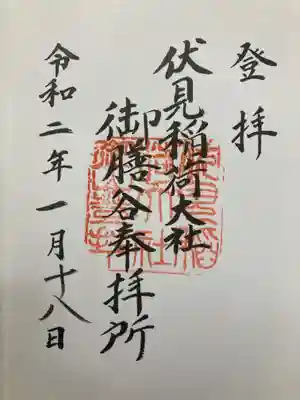 登拝
伏見稲荷大社
御膳谷奉拝所
令和二年一月十八日